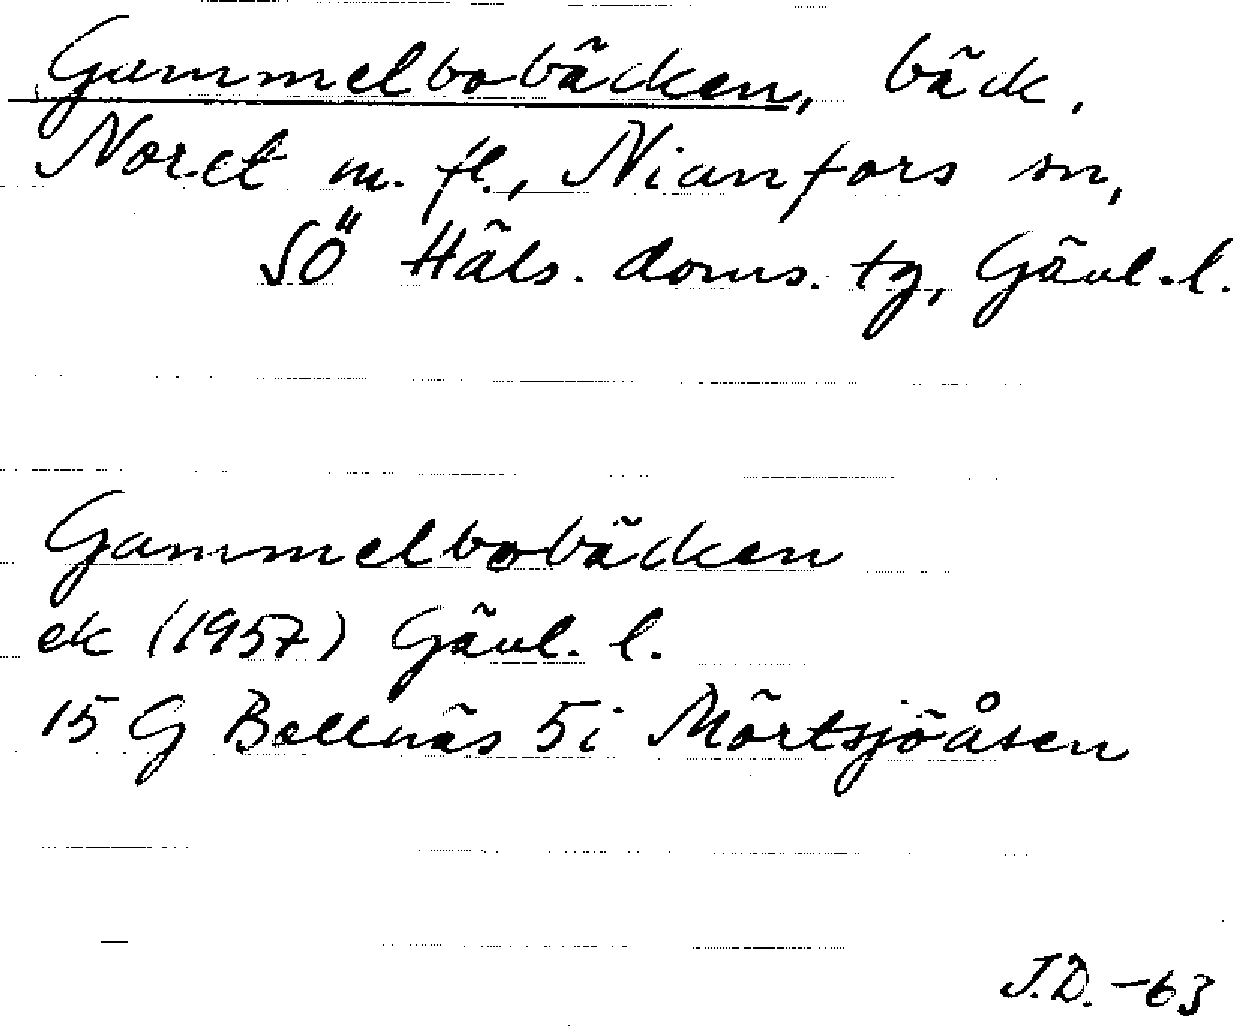 Gammelbobäcken, bäck,
Noret m. fl., Nianfors sn,
SÖ Häls. doms. tg, Gävl. l.
Gammelbobäcken
ek (1957) Gävl. l.
15 G Bellnäs 5i Mörtsjöåsen
J.D. -63